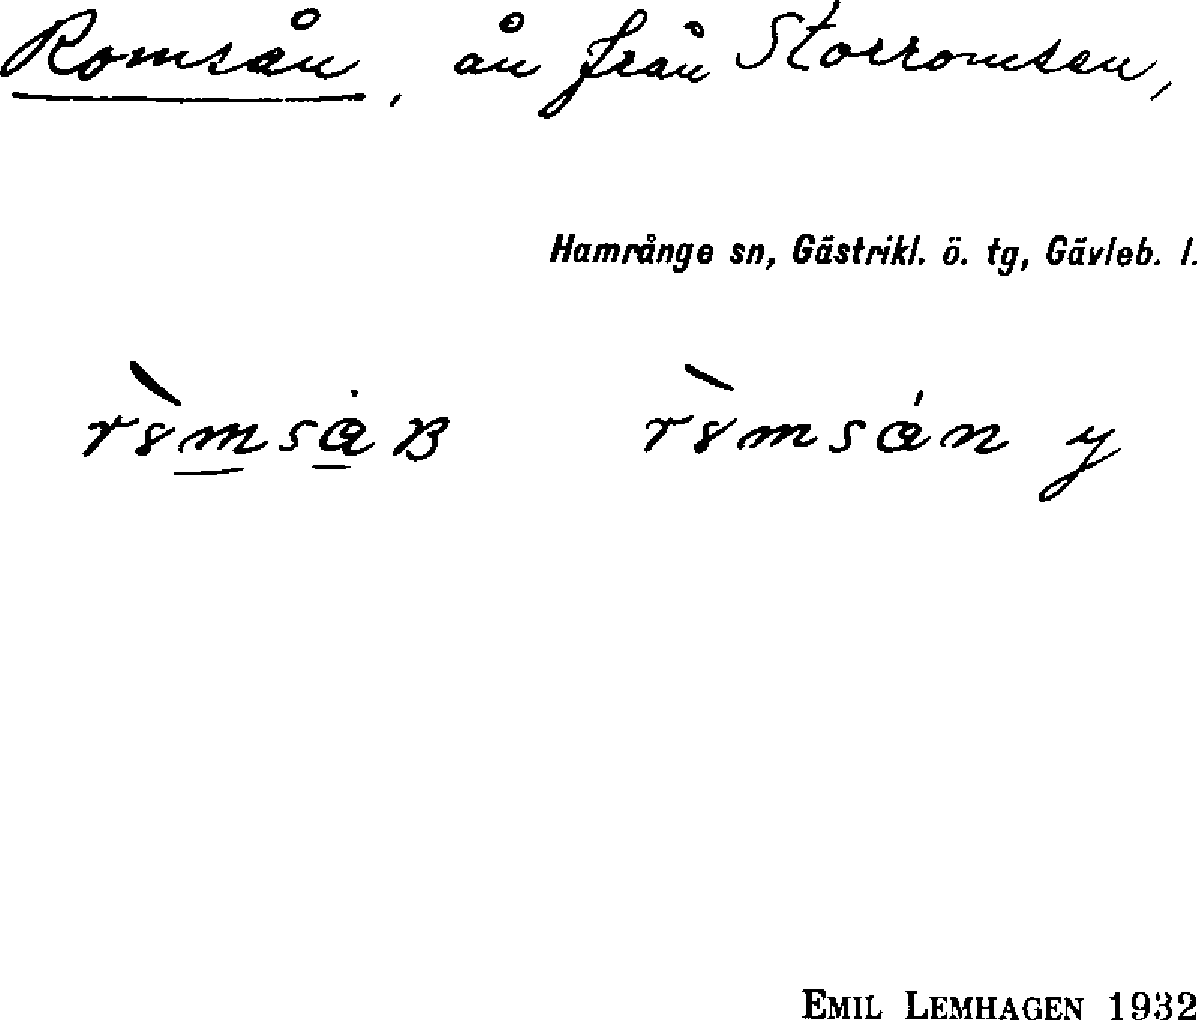 Romsån, ån från Storromsen,
Hamrånge sn, Gästrikl. ö. tg, Gävleb. l.
EMIL LEMHAGEN 1932